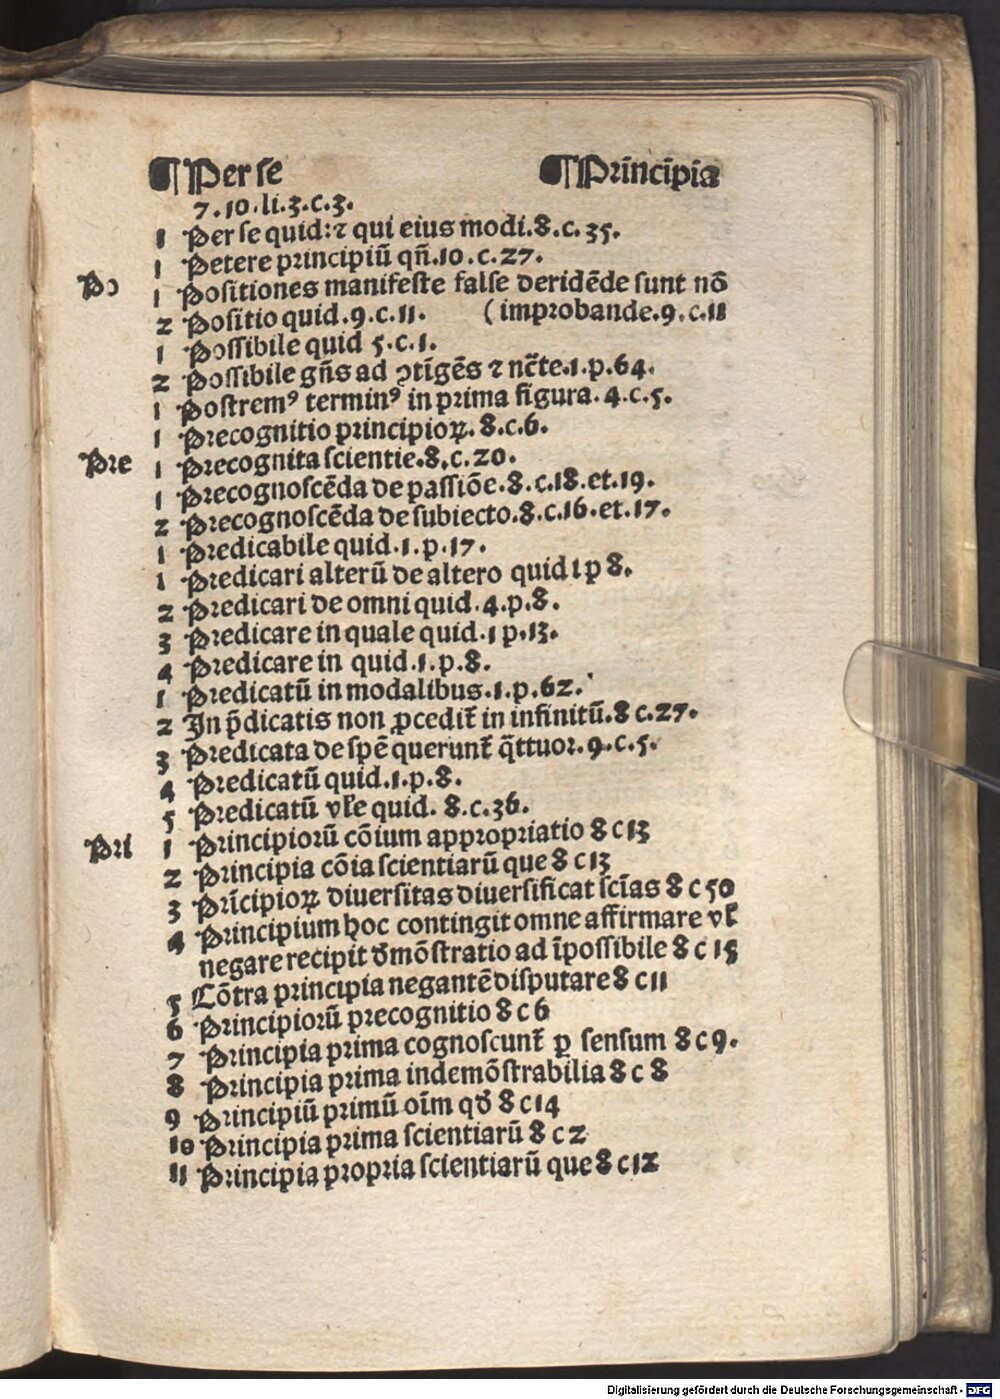 ¶ Per se ¶ Prīncīpia
7.10.li.3.c.3.
1 Per se quid:⁊ qui eius modi.8.c.35.
1 Petere principiū qñ.10.c.27.
Po 1 Positiones manifeste false deridēde sunt nō
2 Positio quid.9.c.11. (improbande.9.c.11
1 Possibile quid 5.c.1.
2 Possibile gñs ad ↄtīgēs ⁊ ncẽte.1.p.64.
1 Postremꝰ terminꝰ in prima figura.4.c.5.
1 Precognitio principioꝝ.8.c.6.
Pre 1 Precognita scientie.8.c.20.
1 Precognoscēda de passiōe.8.c.18.et.19.
2 Precognoscēda de subiecto.8.c.16.et.17.
1 Predicabile quid.1.p.17.
1 Predicari alterū de altero quid 1 p 8.
2 Predicari de omni quid.4.p.8.
3 Predicare in quale quid.1 p.13.
4 Predicare in quid.1.p.8.
1 Predicatū in modalibus.1.p.62.
2 In p̄dicatis non ꝓcedit̃ in infinitū.8 c.27.
3 Predicata de spē querunt̃ q̄ttuor.9.c.5.
4 Predicatū quid.1.p.8.
5 Predicatū vł̃e quid. 8.c.36.
Pri 1 Principiorū cōium appropriatio 8 c 13
2 Principia cōia scientiarū que 8 c 13
3 Prīcipioꝝ diuersitas diuersificat scīas 8 c 50
4 Principium hoc contingit omne affirmare vł
negare recipit ḋmōstratio ad īpossibile 8 c 15
5 Cōtra principia negantē disputare 8 c 11
6 Principiorū precognitio 8 c 6
7 Principia prima cognoscunt̃ ꝑ sensum 8 c 9.
8 Principia prima indemōstrabilia 8 c 8
9 Principiū primū oīm qḋ 8 c 14
10 Principia prima scientiarū 8 c 2
11 Principia propria scientiarū que 8 c 12
Digitalisierung gefördert durch die Deutsche Forschungsgemeinschaft - DFG